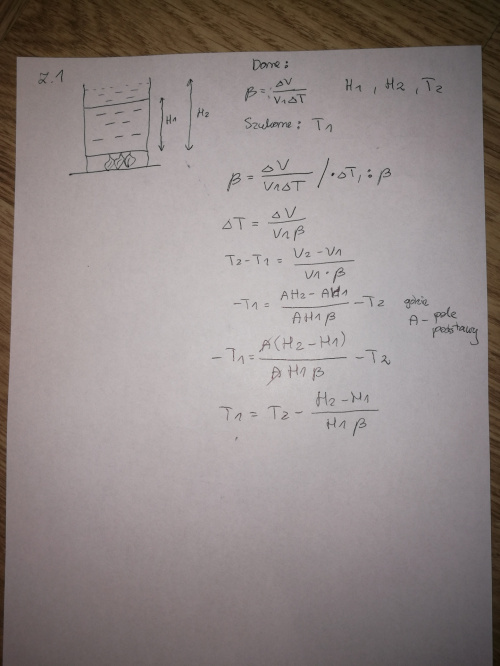 z.1
Dane:
β = ΔV / V1ΔT   H1, H2, T2
H1
H2
Szukane: T1
β = ΔV / V1ΔT / · ΔT, : β
ΔT = ΔV / V1 β
T2 - T1 = V2 - V1 / V1 · β
-T1 = AH2 - AH1 / AH1 β - T2   gdzie
A - pole
podstawy
-T1 = A(H2 - H1) / A H1 β - T2
T1 = T2 - H2 - H1 / H1 β